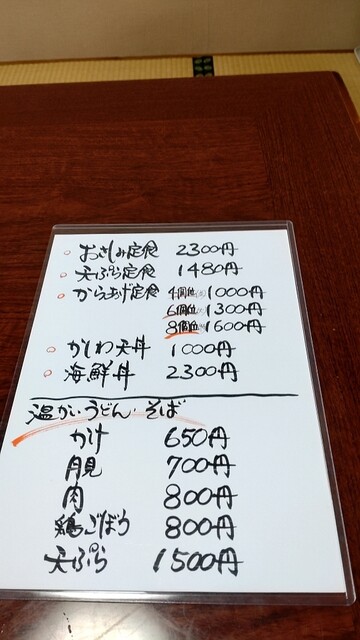 ○ おさしみ定食 2300円
○ 天ぷら定食 1480円
○ からあげ定食 4個 1000円
6個 1300円
8個 1600円
○ かしわ天丼 1000円
○ 海鮮丼 2300円
温かいうどん・そば
かけ 650円
月見 700円
肉 800円
鶏ごぼう 800円
天ぷら 1500円